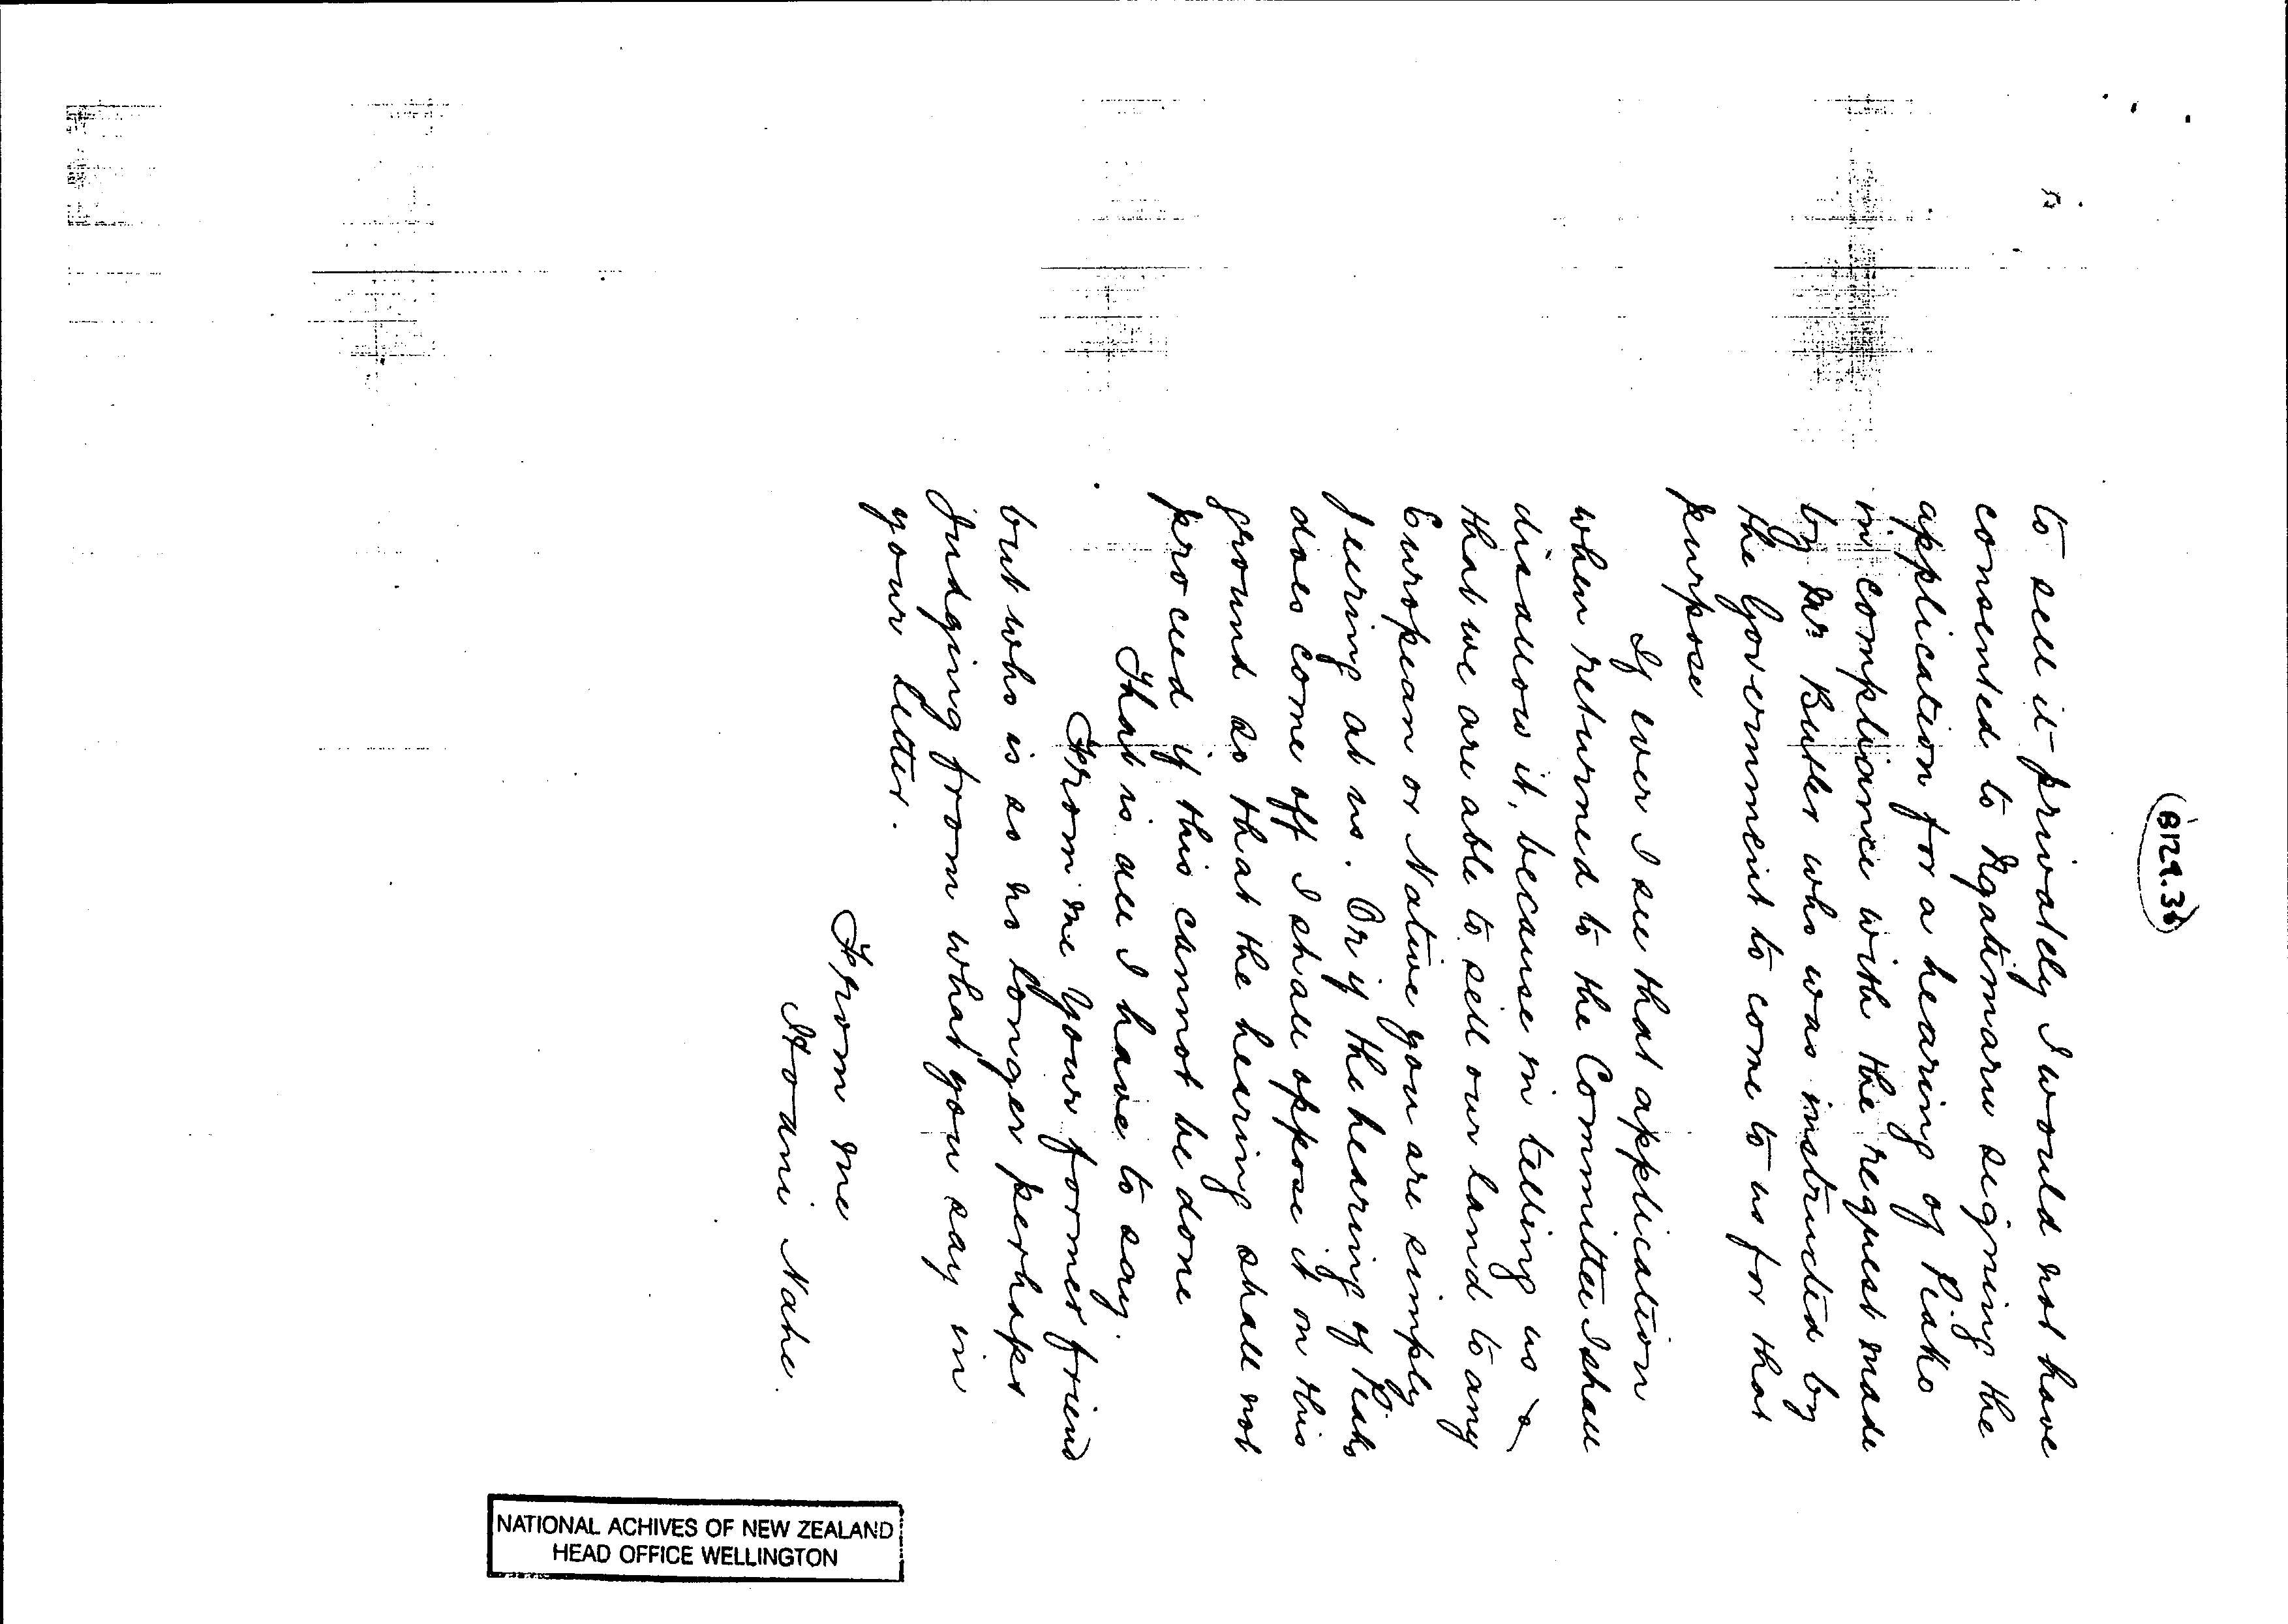 B129.38
to sell it privately I would not have
consented to Ngatimaru signing the
application for a hearing of Piako
in compliance with the request made
by Mr Butler who was instructed by
the Government to come to us for that
purpose
If ever I see that application
when returned to the Committee I shall
disallow it, because in telling us
that we are able to sell our land to any
European or Native you are simply
jeering at us. Or if the hearing of Piako
does come off I shall oppose it on this
ground so that the hearing shall not
proceed if this cannot be done
That is all I have to say.
From me your former friend
but who is so no longer perhaps
Judging from what you say in
your letter.
From me
Hoani Nahe.
NATIONAL ACHIVES OF NEW ZEALAND
HEAD OFFICE WELLINGTON